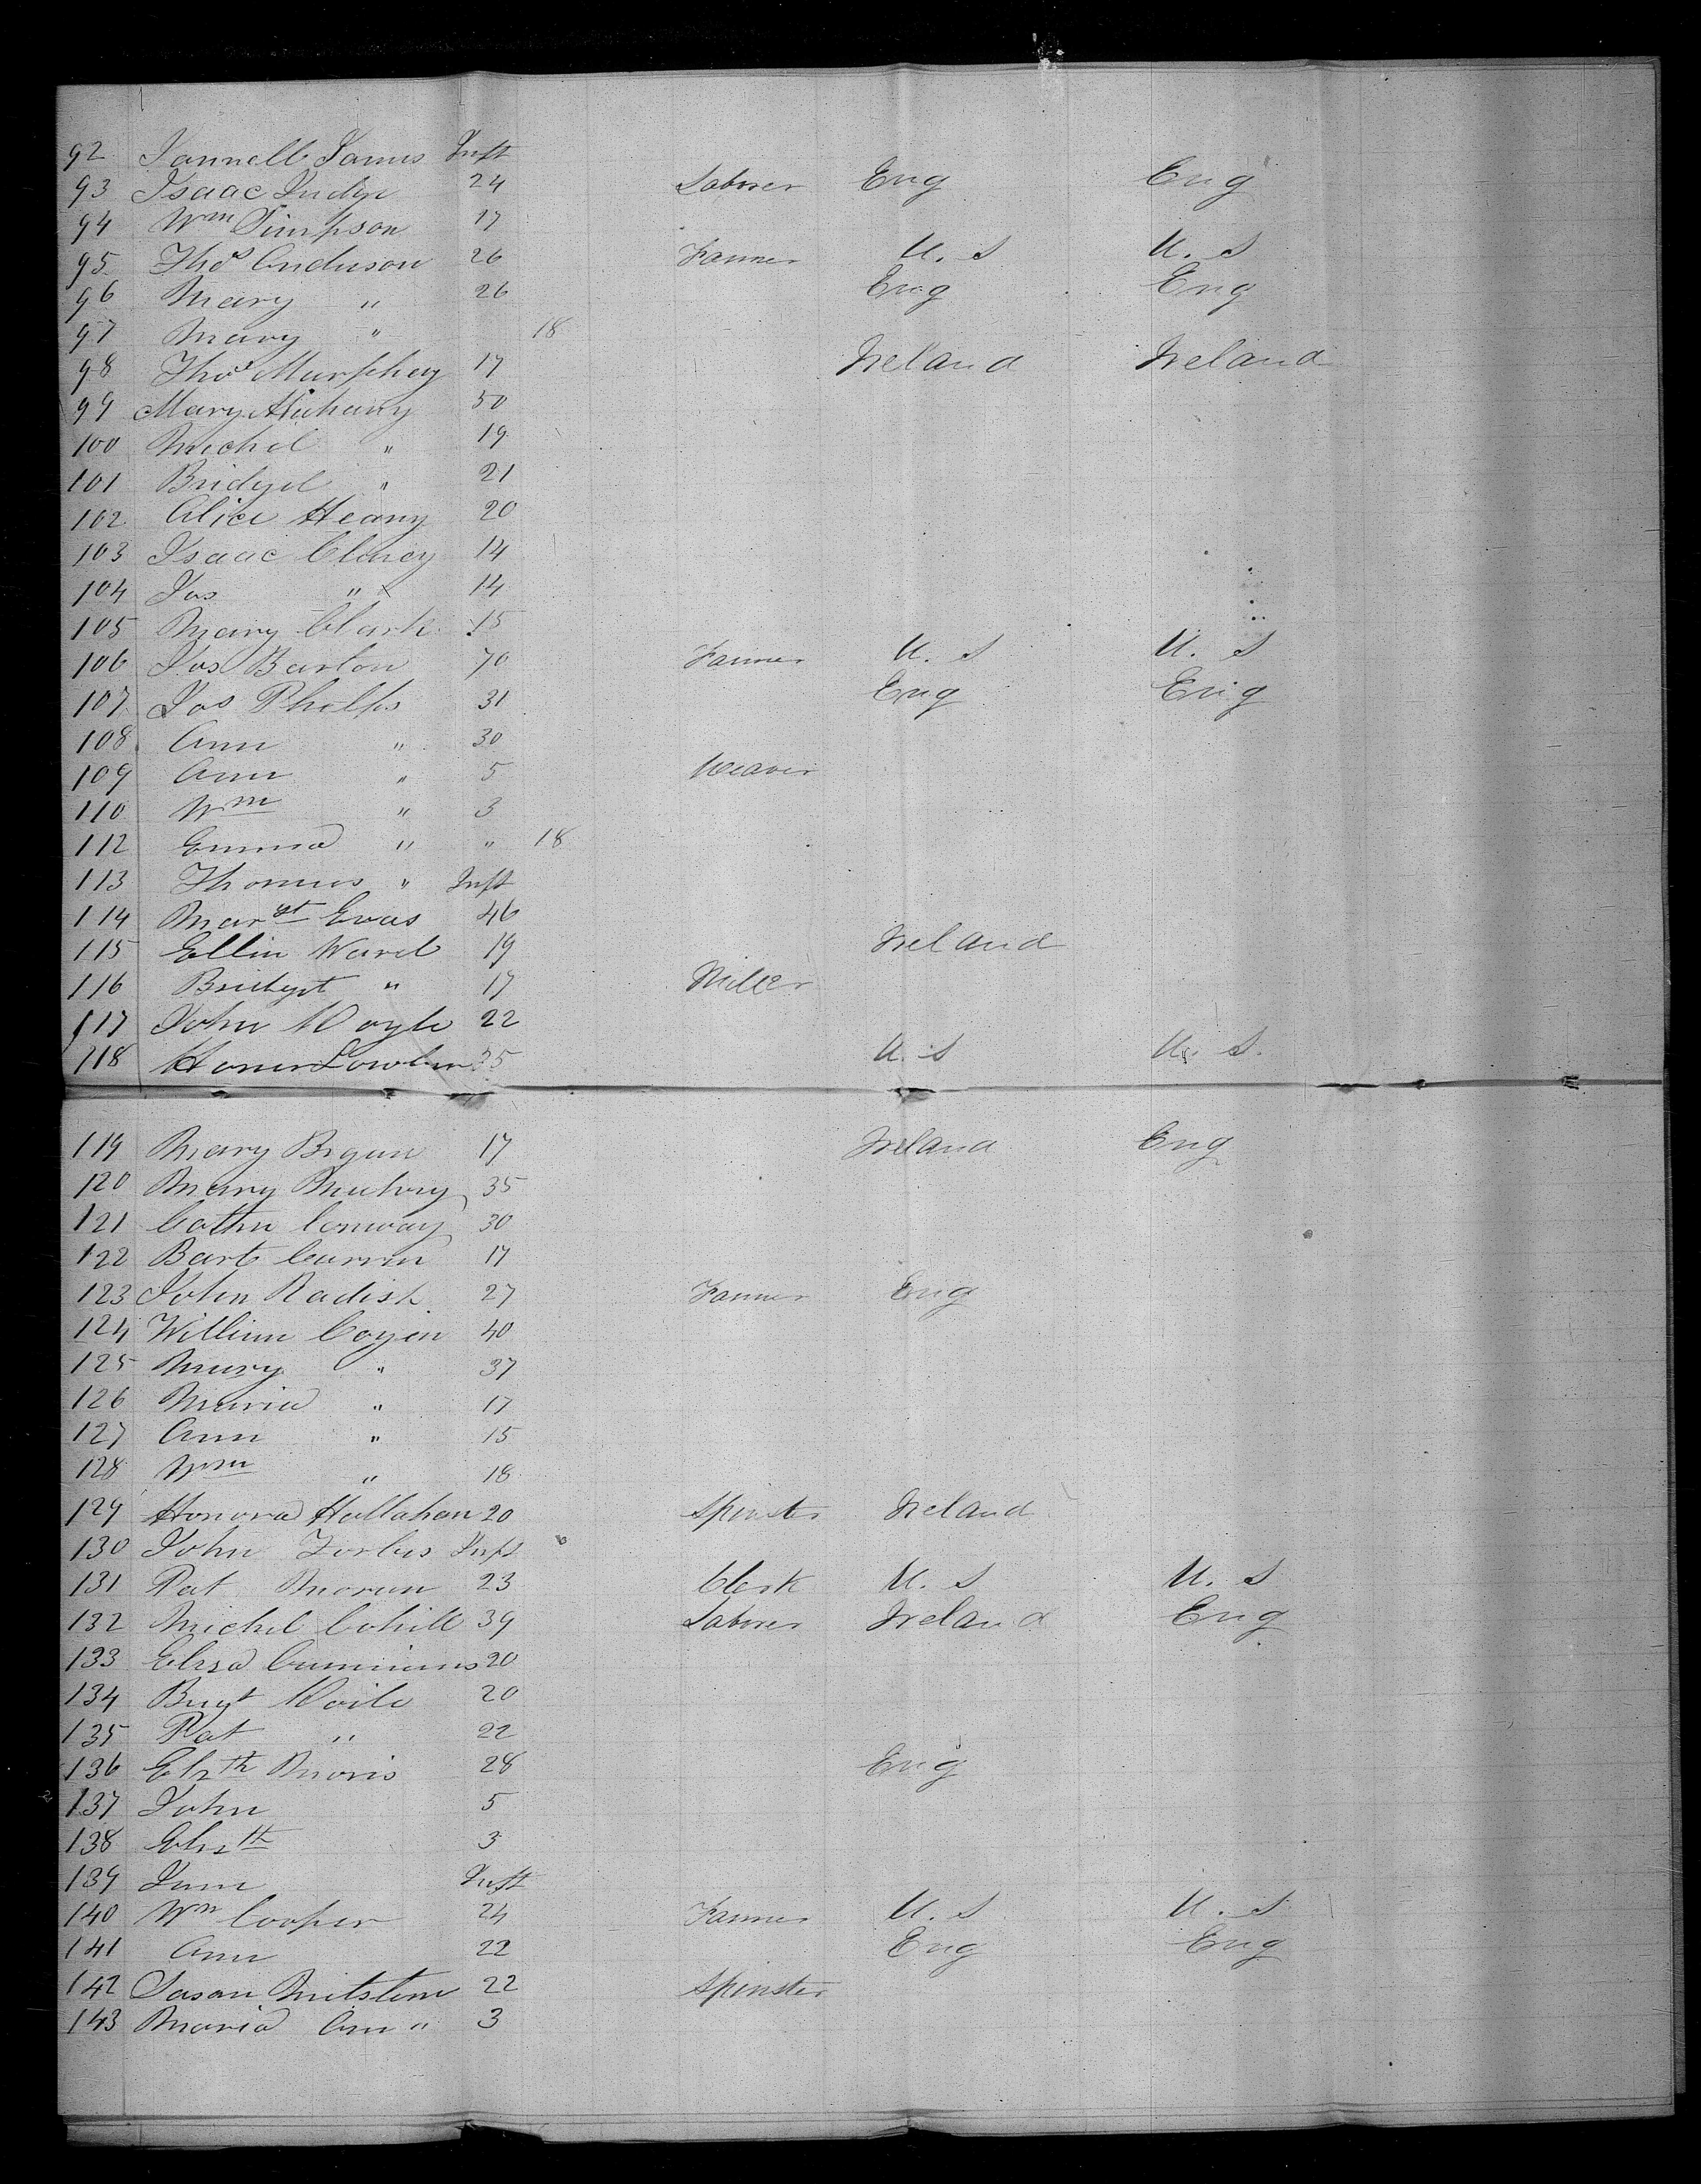 92 Jannell James Inft
93 Isaac Judge 24 Laborer Eng Eng
94 Wm Simpson 17
95 Thos Anderson 26 Farmer U. S U. S
96 Mary " 26 Eng Eng
97 Mary " 18
98 Thos Murphey 17 Ireland Ireland
99 Mary 50
100 Michel " 19
101 Bridget " 21
102 Alice Heany 20
103 Isaac Clancy 14
104 Jas " 14
105 Mary Clark 15
106 Jos Barton 70 Farmer U. S U. S
107 Jos Phelps 31 Eng Eng
108 Ann " 30
109 Ann " 5 Weaver
110 Wm " 3
112 Emma " " 18
113 Thomas " Inft
114 Margt Evas 46
115 Ellin Ward 19 Ireland
116 Bridget " 17 Miller
117 John Doyle 22
118 Honer Lowlen 35 U. S U. S.
119 Mary Bryan 17 Ireland Eng
120 Mary 35
121 Cathn Conway 30
122 Bart Curren 17
123 John Radish 27 Farmer Eng
124 William Coyen 40
125 Mary " 37
126 Maria " 17
127 Ann " 15
128 Wm " 18
129 Honora Hallahan 20 Spinster Ireland
130 John Forbes Inft
131 Pat Moran 23 Clerk U. S U. S
132 Michel Cohill 39 Laborer Ireland Eng
133 Eliza Cummins 20
134 Bugt Doile 20
135 Pat " 22
136 Elzth Moris 28 Eng
137 John 5
138 Elizth 3
139 Jane Inft
140 Wm Cooper 24 Farmer U. S U. S
141 Ann 22 Eng Eng
142 Susan 22 Spinster
143 Maria Ann " 3